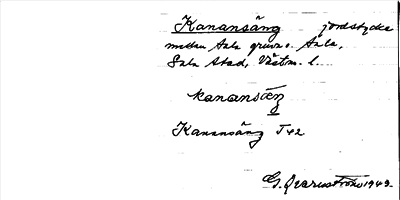 Kanansäng jordstycke
mellan Sala gruva o. Sala,
Sala stad, Västm. l.
kanansäŋ
Kanansäng T42
G. Qvarnström 1943.